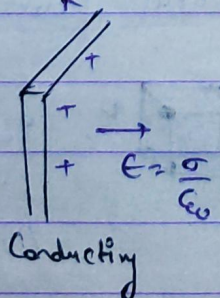 +
+
+
E = σ/ε₀
Conducting